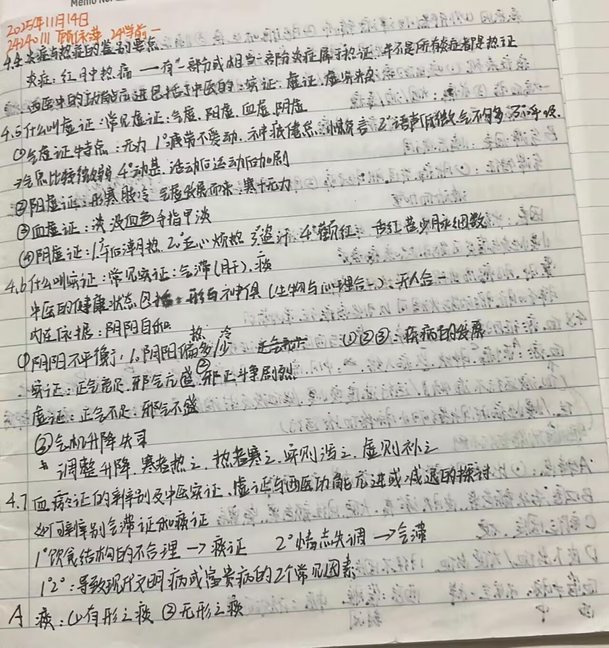 Memo No.
2025年11月14日
24240111
4.4 炎症与热症的鉴别要点
炎症:红肿热痛 — 有一部分或相当一部分炎症属于热证,并不是所有炎症都是热证
西医中的功能亢进包括了中医的:实证,虚证,虚实夹杂
4.5 什么叫虚证:常见虚证:气虚,阳虚,血虚,阴虚
①气虚证特点:无力 1°疲劳不爱动,神疲倦怠,懒言 2°语声低微,气不够多
→气息比较微弱 4°动甚,活动后运动后加剧
②阳虚证:形寒肢冷 气虚发展而来:寒+无力
③血虚证:淡 没血色 手指甲淡
④阴虚证:1°午后潮热 2°五心烦热 3°盗汗 4°颧红 舌红苔少 脉细数
4.6 什么叫实证:常见实证:气滞(肝),痰
中医的健康状态包括:形与神俱(生物与心理合一),天人合一
内在依据:阴阳自和
①阴阳不平衡:1.阴阳偏多/少 热 冷 ①②③:疾病的发展
实证:正气充足,邪气亢盛,邪正斗争剧烈
虚证:正气不足,邪气不盛
②气机升降失常
调整升降,寒者热之,热者寒之,实则泻之,虚则补之
4.7 血瘀证的辨别及中医实证,虚证与西医功能亢进或减退的探讨
如何辨别气滞证和痰证
1°饮食结构的不合理 → 痰证 2°情志失调 → 气滞
1°2°:导致现代文明病或富贵病的2个常见因素
A 痰:①有形之痰 ②无形之痰